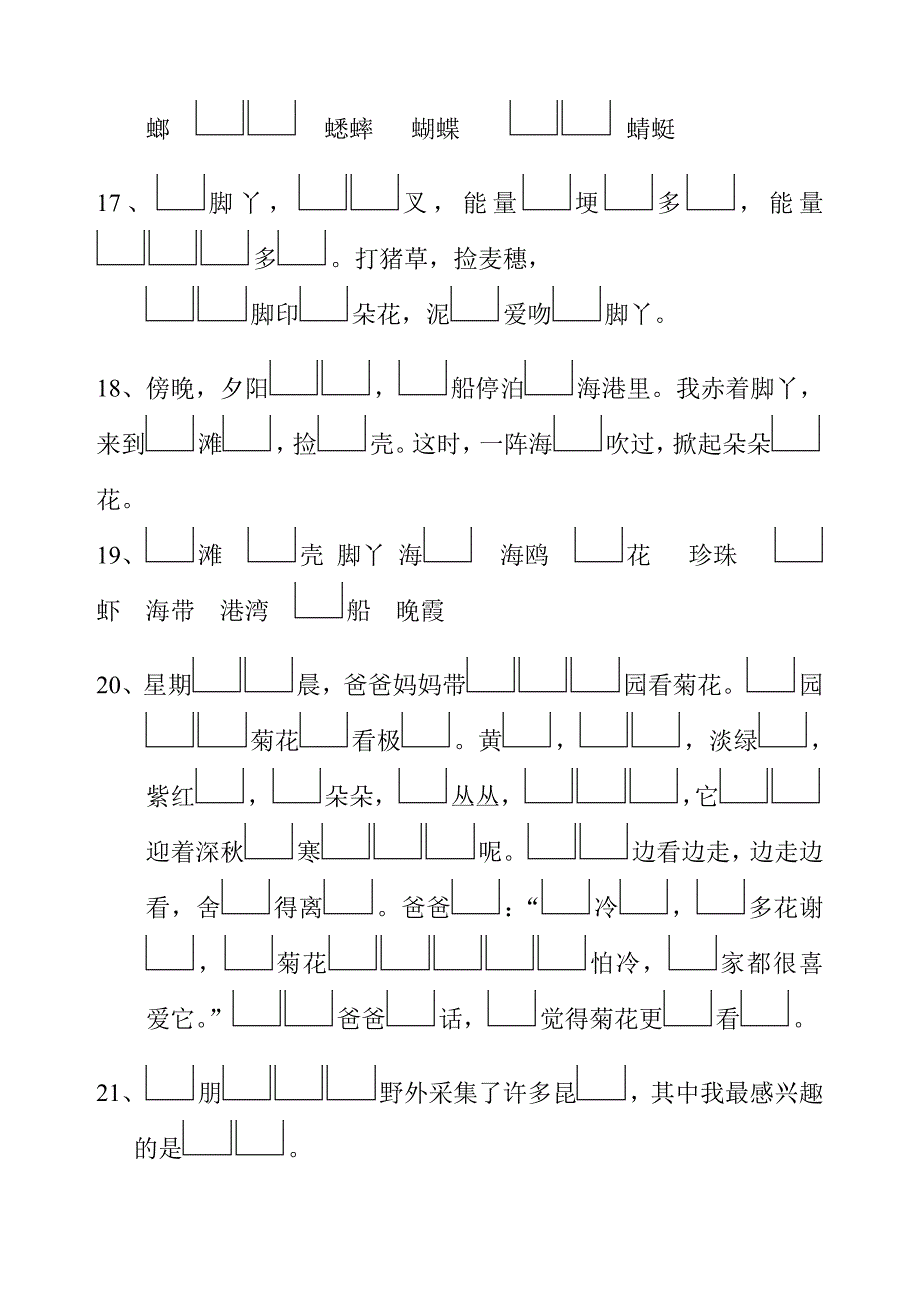 螂 □□ 蟋蟀 蝴蝶 □□ 蜻蜓
17、□脚丫，□□叉，能量□埂□多□，能量
□□□多□。打猪草，捡麦穗，
□□脚印□朵花，泥□爱吻□脚丫。
18、傍晚，夕阳□□，□船停泊□海港里。我赤着脚丫，
来到□滩□，捡□壳。这时，一阵海□吹过，掀起朵朵□
花。
19、□滩 □壳 脚丫 海□ 海鸥 □花 珍珠 □
虾 海带 港湾 □船 晚霞
20、星期□□晨，爸爸妈妈带□□□园看菊花。□园
□□菊花□看极□。黄□，□□，淡绿□，
紫红□，□朵朵，□丛丛，□□□，它□□
迎着深秋□寒□□□呢。□□边看边走，边走边
看，舍□得离□。爸爸□：“□冷□，□多花谢
□，□菊花□□□□□怕冷，□家都很喜
爱它。”□□爸爸□话，□觉得菊花更□看□。
21、□朋□□□野外采集了许多昆□，其中我最感兴趣
的是□□。